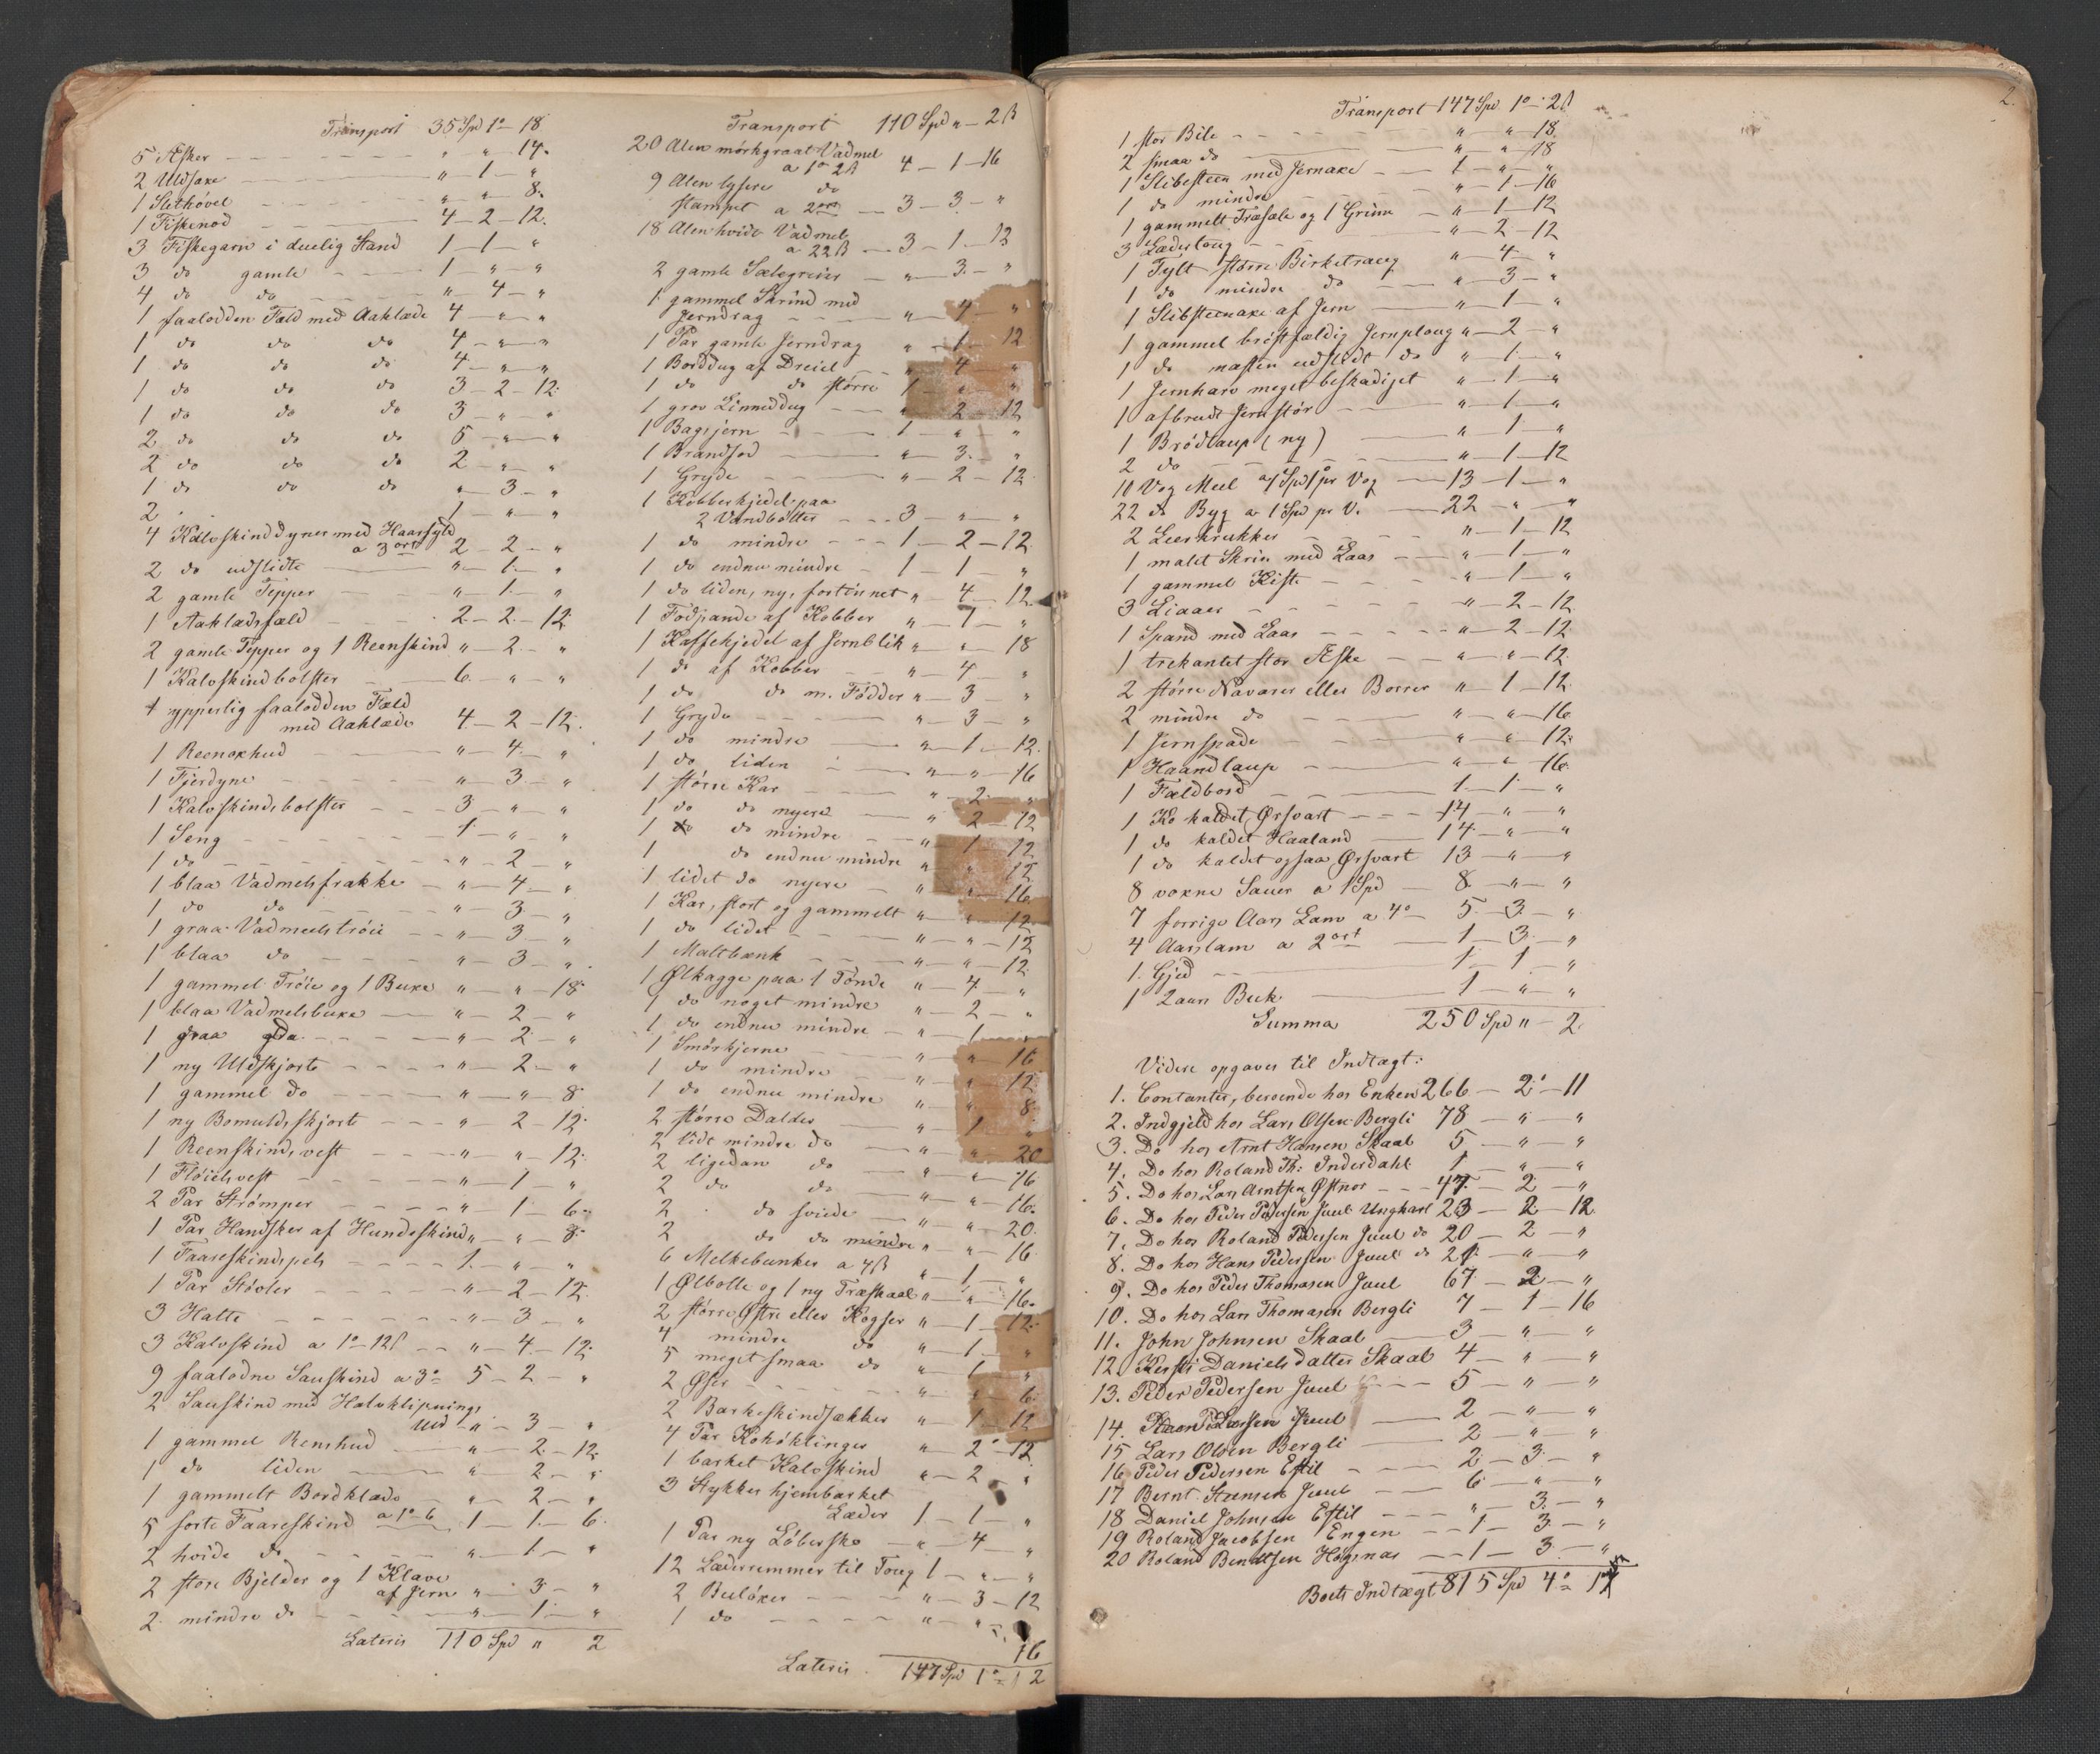 Transport 35 Spd 1o 18
5 Æsker - " " 14
2 Uldsaxe " 1 "
1 Slethøvel " " 8
1 Fiskenod 4 - 2 - 12
3 Fiskegarn i duelig Stand 1 - 1 - "
3 do gamle 1 - " - "
4 do do " - 4 - "
1 faalodden Fæld med Aaklæde 4 - " - "
1 do do do 4 - " - "
1 do do do 4 - " - "
1 do do do 3 - 2 - 12
1 do do do 3 - " - "
2 do do do 5 - " - "
2 do do do 2 - " - "
1 do do do " - 3 - "
2 1 - " - "
4 Kalvskinddyner med Haarfyld
a 3 ort 2 - 2 - "
2 do udslidte " - 1 - "
2 gamle Tepper " - 1 - "
1 Aaklædsfæld 2 - 2 - 12
2 gamle Tepper og 1 Reenskind " - 2 - "
1 Kalvskindbolster 6 - " - "
1 ypperlig faalodden Fæld
med Aaklæde 4 - 2 - 12
1 Reenoxhud " - 4 - "
1 Fjerdyne " - 3 - "
1 Kalvskindsbolster 3 - " - "
1 Seng 1 - " - "
1 do " - 2 - "
1 blaa Vadmelsfrakke " - 4 - "
1 do do " - 3 - "
1 graa Vadmelstrøie " - 3 - "
1 blaa do " - 3 - "
1 gammel Trøie og 1 Buxe " - " - 18
1 blaa Vadmelsbuxe " - 2 - "
1 graa do " - 2 - "
1 ny Uldskjorte " - 2 - "
1 gammel do " - " - 8
1 ny Bomuldsskjorte " - 2 - 12
1 Reenskindsvest " - " - 12
1 Fløielsvest " - 1 - "
2 Par Strømper " - 1 - 6
1 Par Handsker af Hundeskind " - " - 8
1 Faareskindspels 1 - " - "
1 Par Støvler " - 2 - 12
3 Hatte " - 3 - "
3 Kalvskind a 1o 12ß " - 4 - 12
9 faalodne Sauskind a 3o 5 - 2 - "
2 Sauskind med Halvklipnings
Uld " - 3 - "
1 gammel Renshud " - 2 - 12
1 do liden " - 2 - "
1 gammelt Bordklæde " - 2 - "
5 sorte Faareskind a 1o 6 1 - 1 - 6
2 hvide do " - 1 - "
2 store Bjelder og 1 Klave
af Jern " - 3 - "
2 mindre do " - 1 - "
Lateris 110 Spd " 2
Transport 110 Spd " - 2ß
20 Alen mørkgraat Vadmel
a 1o 2ß 4 - 1 - 16
9 Alen lysere do
stampet a 2 ort 3 - 3 - "
18 Alen hvidt Vadmel
a 22ß 3 - 1 - 12
2 gamle Sælegreier " - 3 - "
1 gammel Skrind med
Jerndrag " - 4 - "
1 Par gamle Jerndrag " - 1 - 12
1 Borddug af Dreiel " - 4 - "
1 do do større 1 - " - "
1 grov Linneddug " - 2 - 12
1 Bagsjern 1 - " - "
1 Brandsod " - 3 - "
1 Gryde " - 2 - 12
1 Kobberkjedel paa
2 Vandbøtter 3 - " - "
1 do mindre 1 - 2 - 12
1 do endnu mindre 1 - 1 - "
1 do liden, ny, fortinnet " - 4 - 12
1 Fodpande af Kobber " - 1 - "
1 Kaffekjedel af Jernblik " - " - 18
1 do af Kobber " - 4 - "
1 do do m. Fødder " - 3 - "
1 Gryde " - 3 - "
1 do mindre " - 1 - 12
1 do liden " - " - 16
1 større Kar " - 2 - "
1 do do nyere " - 2 - 12
1 do do mindre " - 1 - 12
1 do endnu mindre " " 12
1 lidet do nyere " " 16
1 Kar, stort og gammelt " " 12
1 do lidet " - " - 12
1 Maltbænk " - " - 12
1 Ølkagge paa 1 Tønde " - 4 - "
1 do noget mindre " - 2 - "
1 do endnu mindre " - 1
1 Smørkjerne " " 16
1 do mindre " " 12
1 do endnu mindre " " 8
2 større Dalder " 1 "
2 lidt mindre do " " 20
2 ligedan do " " 16
2 do do " - " - 16
2 do sviede " - " - 20
2 do do mindre " " - 16
6 Melkebunker a 4ß " - 1 - "
1 Ølbolle og 1 ny Træskaal " " 16
2 større Østre eller Kogser " - 1 - 12
4 mindre do " - 1 - "
5 meget smaa do " 1 "
2 Øser " " 6
2 Barkeskindsækker " - 1 - 12
4 Par Kohøklinger " - 2 - 12
1 barket Kalvskind " - 2 - "
3 Stykker hjembarket
Læder 1 - 1 - "
1 Par ny Løbersko " - 4 - "
12 Læderremmer til Toug 1 - " - "
2 Buløxer " - 3 - 12
1 do " - "
16
Lateris 147 Spd 1o 2
2.
Transport 147 Spd 1o 2ß
1 stor Bile " - " - 18
2 smaa do " - " - 18
1 Slibesteen med Jernaxe 1 - " - "
1 do mindre " - 1 - 16
1 gammelt Træsæle og 1 Grime " - 1 - 12
3 Lædertoug " - 2 - 12
1 Tylt større Birketræer " - 4 - "
1 do mindre do " - 3 - "
1 Slibsteenaxe af Jern " - 1 - "
1 gammel brøstfældig Jernploug " - 2 - "
1 do næsten udslidt do " - 1 - "
1 Jernharv meget beskadiget " - 1 - "
1 afbrudt Jernstør " - 1 - "
1 Brødlaup (ny) " - 1 - "
2 do " - 1 - 12
11 Vog Meel a 1 Spd 1o pr Vog 13 - 1 - "
22 do Byg a 1 Spd pr V. 22 - " - "
2 Leerkrukker " - 1 - 12
1 malet Skrin med Laas " - 1 - "
1 gammel Kiste " - 1 - "
3 Liaaer " - 2 - 12
1 Spand med Laas " - 2 - 12
1 trekantet stor Æske " - " - 12
2 større Navarer eller Borrer " - 1 - 12
2 mindre do " - " - 16
1 Jernspade " - " - 12
1 Haandlaup " - " - 16
1 Fældbord 1 - 1 - "
1 Ko kaldet Ørsvart 14 - " - "
1 do kaldet Haaland 14 - " - "
1 do kaldet ogsaa Ørsvart 13 - " - "
8 voxne Sauer a 1 Spd 8 - " - "
7 forrige Aars Lam a 4o 5 - 3 - "
4 Aarslam a 2 ort 1 - 3 - "
1 Gjed 1 - 1 - "
1 2aars Buk 1 - " - "
Summa 250 Spd " - 2
Videre opgaves til Indtægt:
1. Contanter, beroende hos Enken 266 - 2o - 11
2. Indgjeld hos Lars Olsen Bergli 78 - " - "
3. Do hos Arnt Hansen Skaal 5 - " - "
4. Do hos Roland Th: Inderdahl 1 - " - "
5. Do hos Lars Arntsen Østnor 47 - 2 - "
6. Do hos Peder Pedersen Juul Ungkarl 23 - 2 - 12
7. Do hos Roland Pedersen Juul do 20 - 2 - "
8. Do hos Hans Pedersen Juul do 21 - " - "
9. Do hos Peder Thomasen Juul 67 - 2 - "
10. Do hos Lars Thomasen Bergli 7 - 1 - 16
11. John Johnsen Skaal 3 - " - "
12. Kersti Danielsdatter Skaal 4 - " - "
13. Peder Pedersen Juul 5 - " - "
14. Juul 2 - " - "
15 Lars Olsen Bergli 2 - " - "
16 Peder Pedersen Estil 2 - 3 - "
17 Bernt Juul 6 - " - "
18 Daniel Johnsen Estil " - 3 - "
19 Roland Jacobsen Engen 1 - 3 - "
20 Roland Bendtsen Høgsnas 1 - 3 - "
Boets Indtægt 815 Spd 4o 17